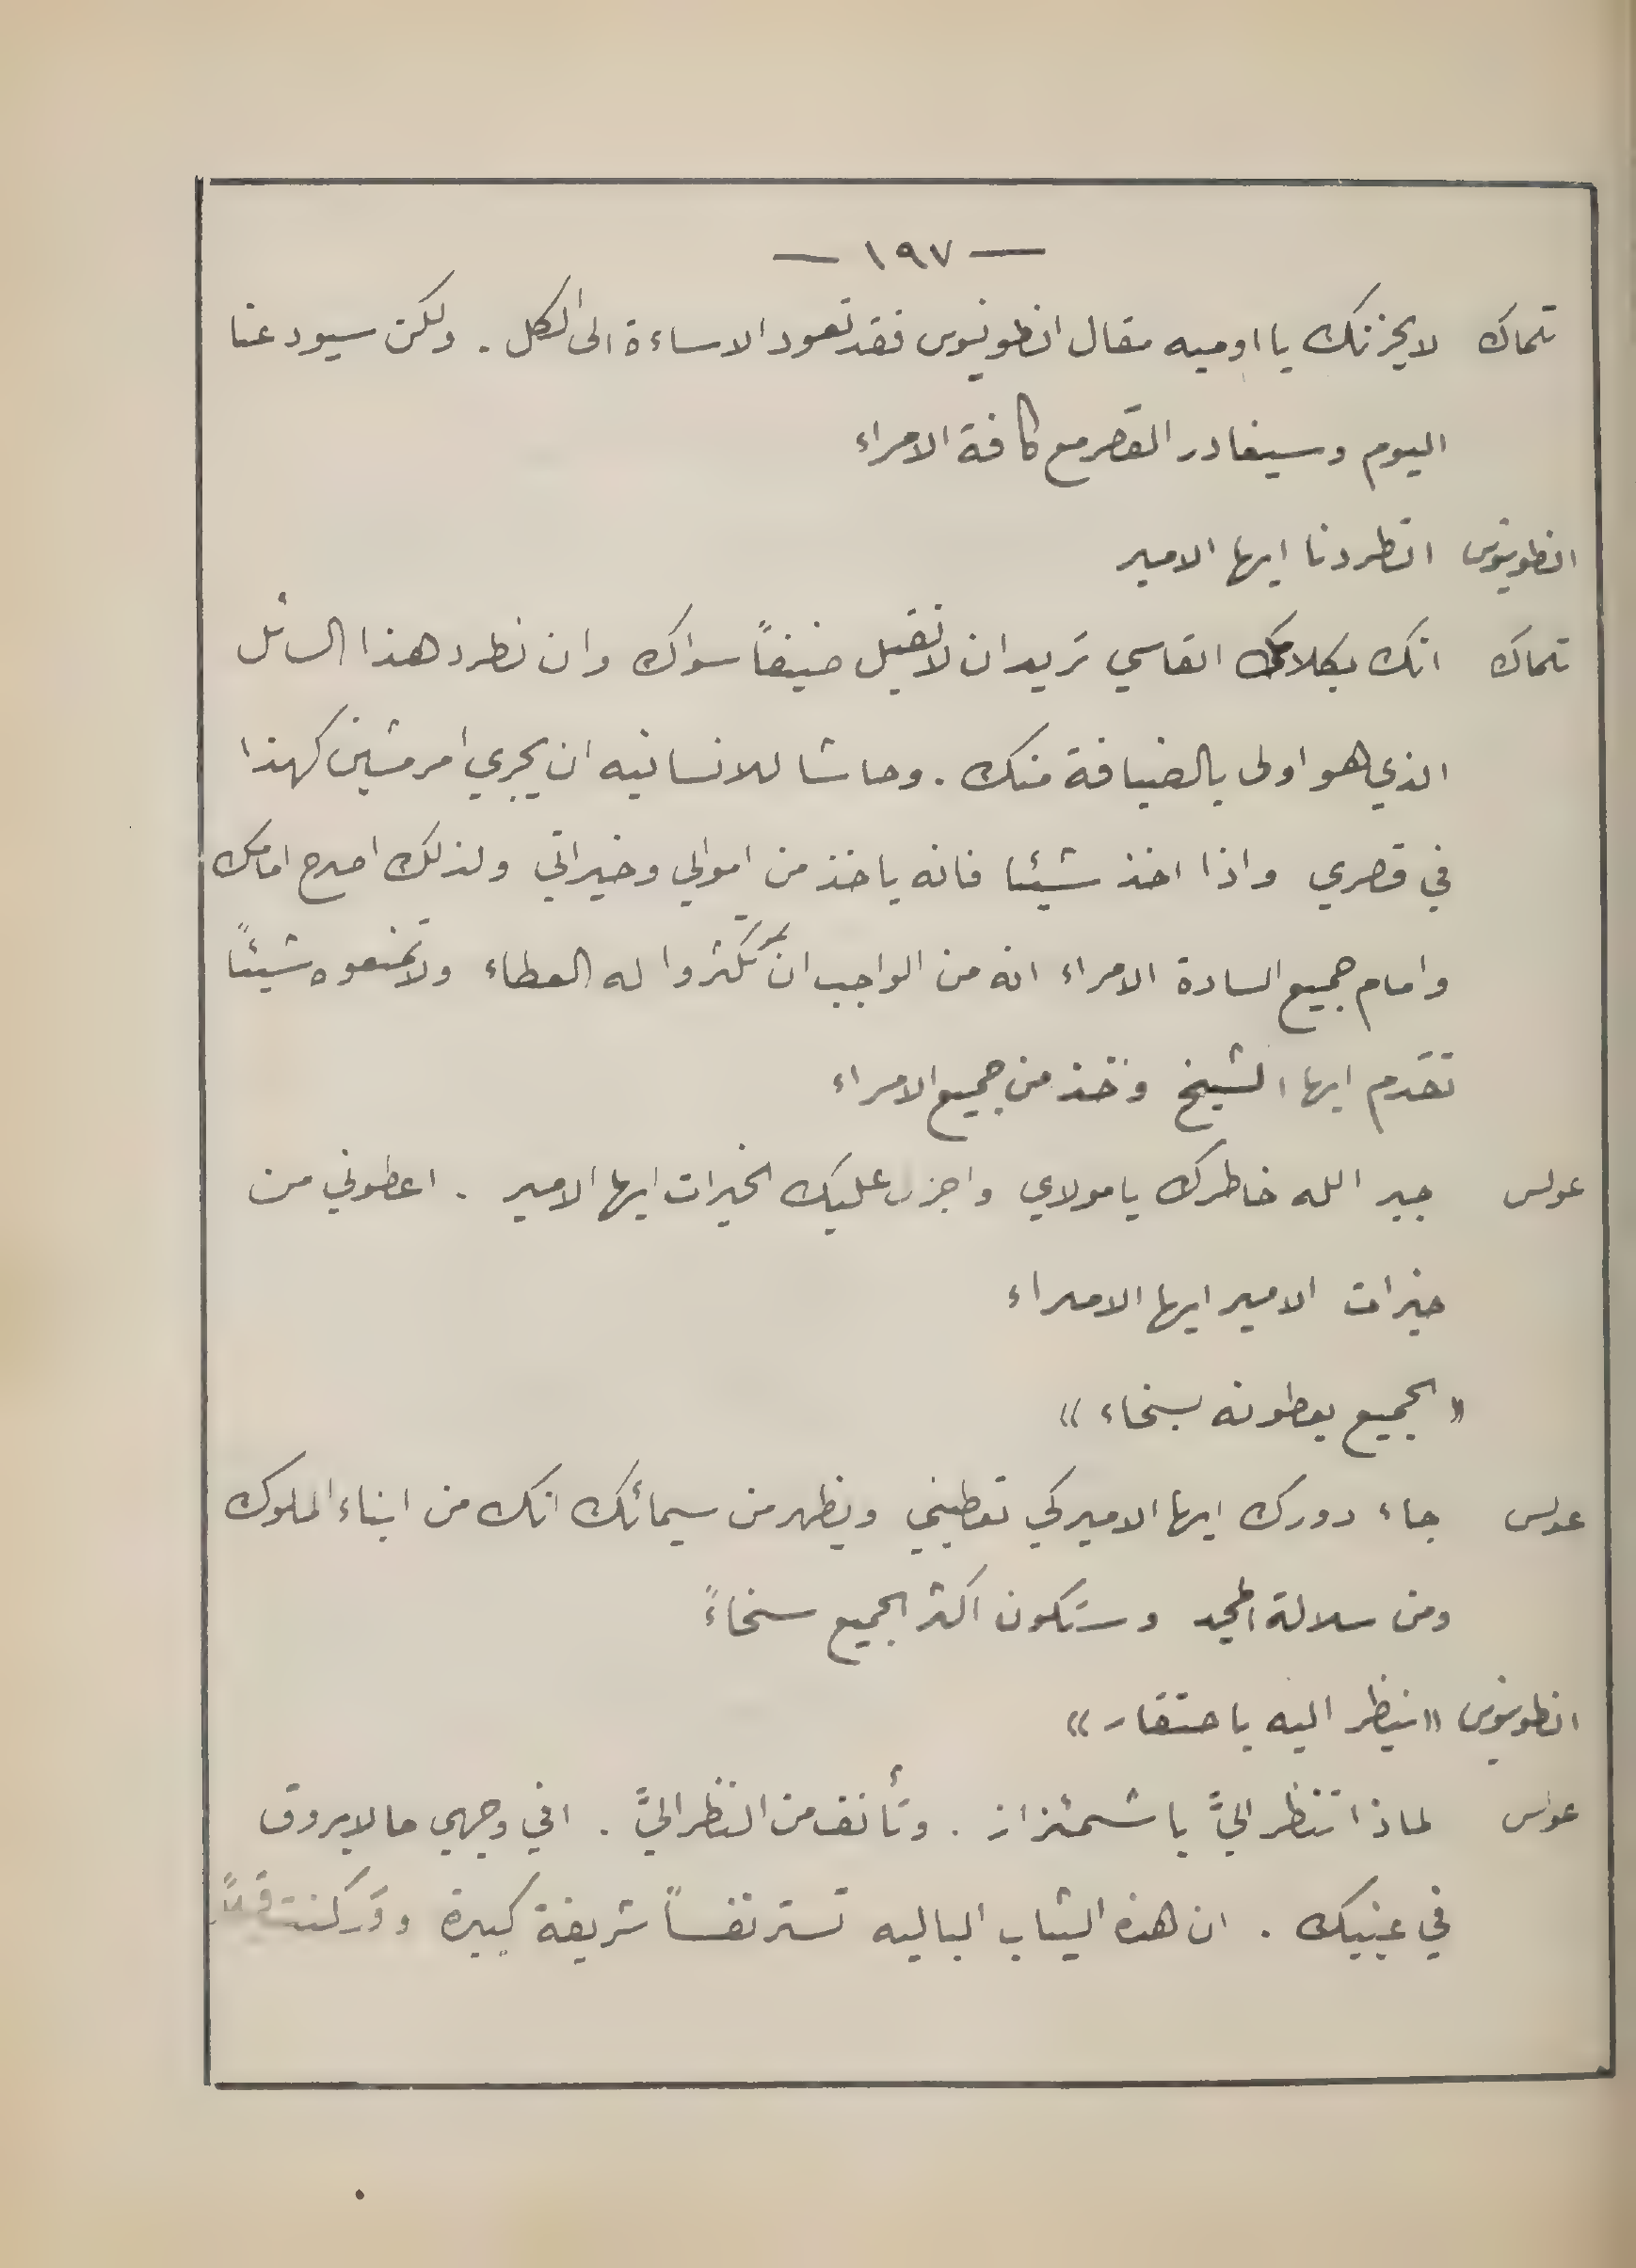 — ١٩٧ —
تلماك لا يحزنك يا اوميه مقال انطونيوس فقد تعود الاساءة الى الكل . ولكن سيودعنا
اليوم وسيغادر القصر مع كافة الامراء
انطونيوس اتطردنا ايها الامير
تلماك انك بكلامك القاسي تريد ان لا نقبل ضيفاً سواك وان نطرد هذا السائل
الذي هو اولى بالضيافة منك . وحاشا للانسانيه ان يجري امر مشين كهذا
في قصري واذا اخذ شيئا فانه ياخذ من اموالي وخيراتي ولذلك اصرح امامك
وامام جميع السادة الامراء انه من الواجب ان تكثروا له العطاء ولا تمنعوه شيئاً
تقدم ايها الشيخ وخذ من جميع الامراء
عولس جبر الله خاطرك يا مولاي واجزل عليك الخيرات ايها الامير . اعطوني من
خيرات الامير ايها الامراء
« الجميع يعطونه بسخاء »
عولس جاء دورك ايها الامير كي تعطيني ويظهر من سيمائك انك من ابناء الملوك
ومن سلالة المجد وستكون اكثر الجميع سخاءً
انطونيوس « ينظر اليه باحتقار »
عولس لماذا تنظر اليَّ باشمئزاز . وتأنف من النظر اليَّ . افي وجهي ما لا يروق
في عينيك . ان هذه الثياب الباليه تستر نفساً شريفة كبيرة وقد كنت